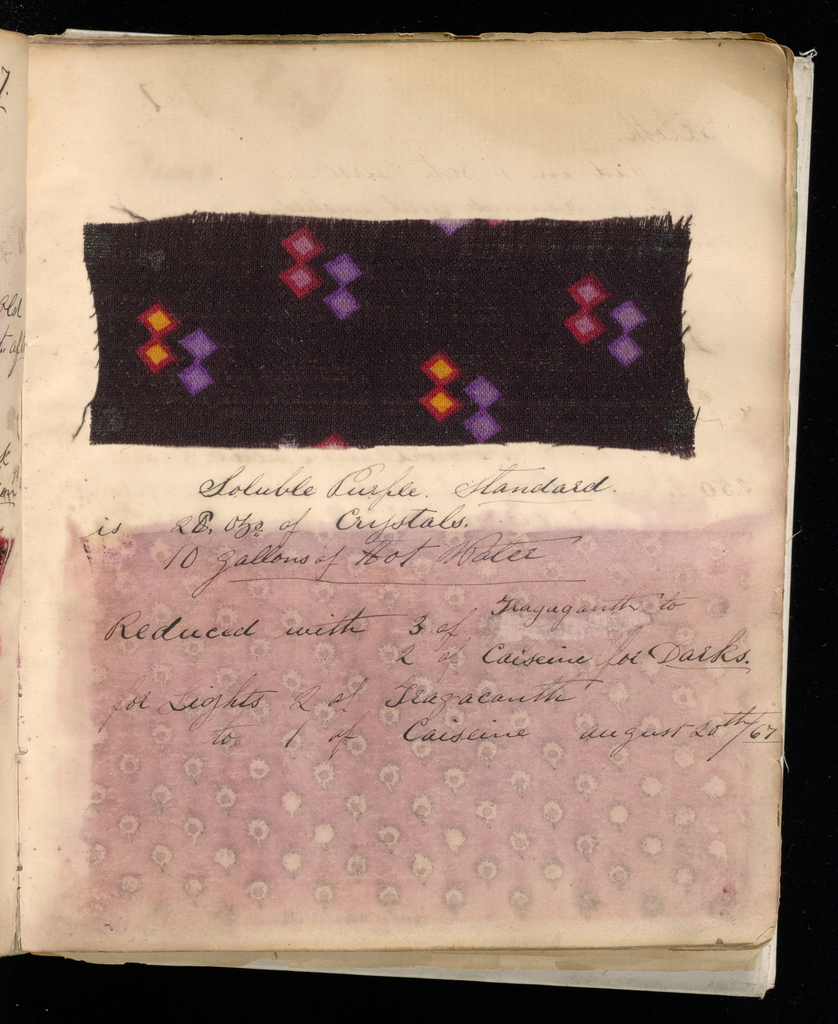 Soluble Purple. Standard.
is 28 ozs of Crystals.
10 gallons of Hot Water
Reduced with 3 of Tragaganth to
2 of Caiseine for Darks.
for Lights 2 of Tragacanth
to 1 of Caiseine august 20th/67